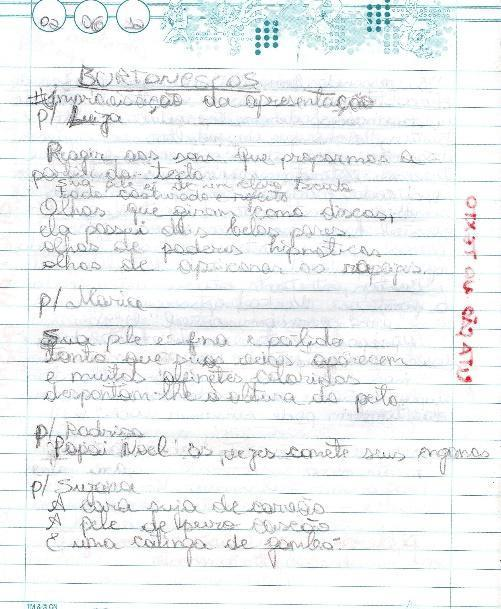 02 06 12
BURTONESCOS
#Improvisação da apresentação
p/ Luiza
Reagir aos sons que propormos a
partir do texto
Sua pele é de um claro
todo costurado e refeito
Olhos que giram como discos,
ela possui dois belos pares.
olhos de poderes hipnóticos
olhos de apaixonar os rapazes.
p/ Marise
Sua pele é fina e pálida
tanto que suas veias aparecem
e muitos alfinetes coloridos
despontam-lhe à altura do peito
p/ Rodrigo
Papai Noel às vezes comete seus enganos
p/ Suzana
A cara suja de carvão
A pele de puro cascão
E uma catinga de gambá.
TM & © CN